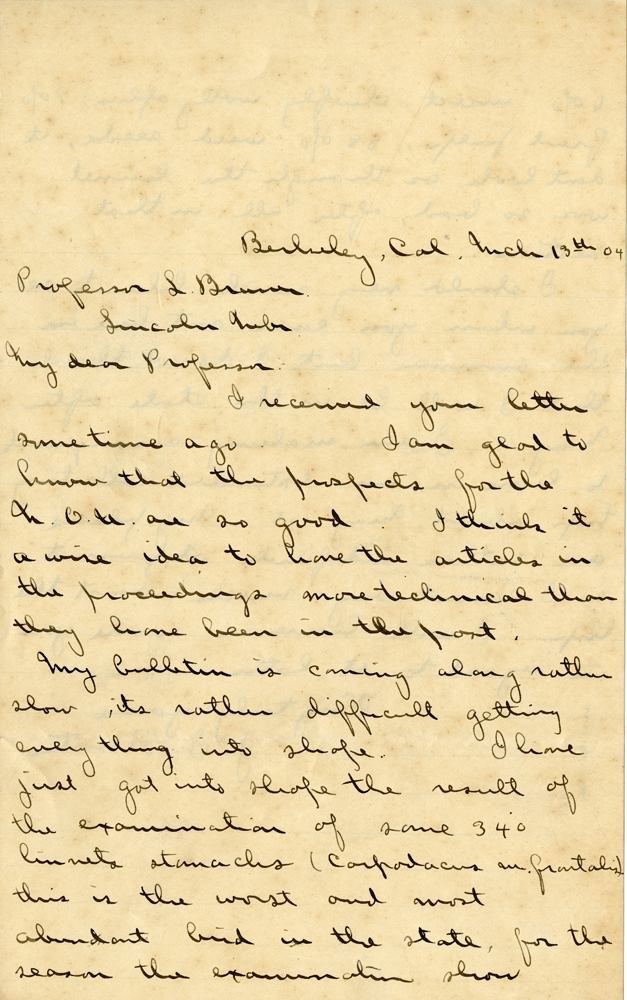 Berkeley, Cal. Mch 13th 04
Professor L. Bruner.
Lincoln Nebr.
My dear Professor:
I received your letter
sometime ago. I am glad to
know that the prospects for the
N. O. U. are so good. I think it
a wise idea to have the articles in
the proceedings more technical than
they have been in the past.
My bulletin is coming along rather
slow, its rather difficult getting
everything into shape. I have
just got into shape the result of
the examination of some 340
linnets stomachs (Carpodacus m. frontalis)
this is the worst and most
abundant bird in the state, for the
season the examination show